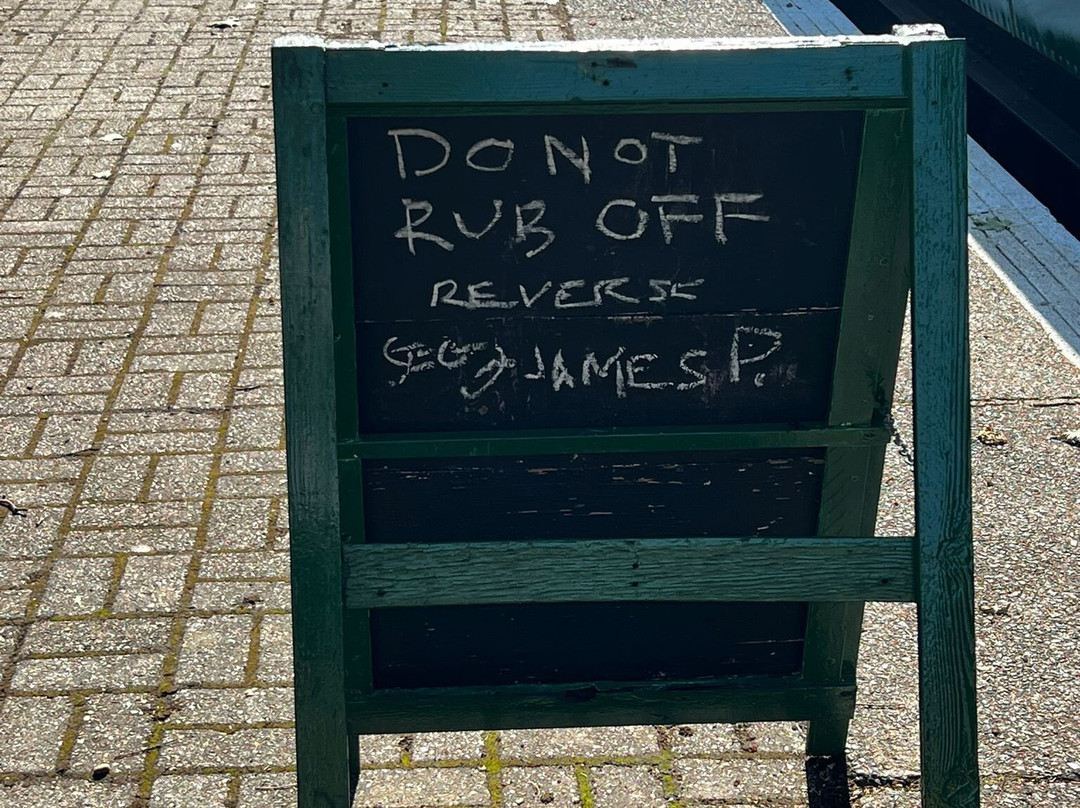 DO NOT
RUB OFF
REVERSE
JAMES P.